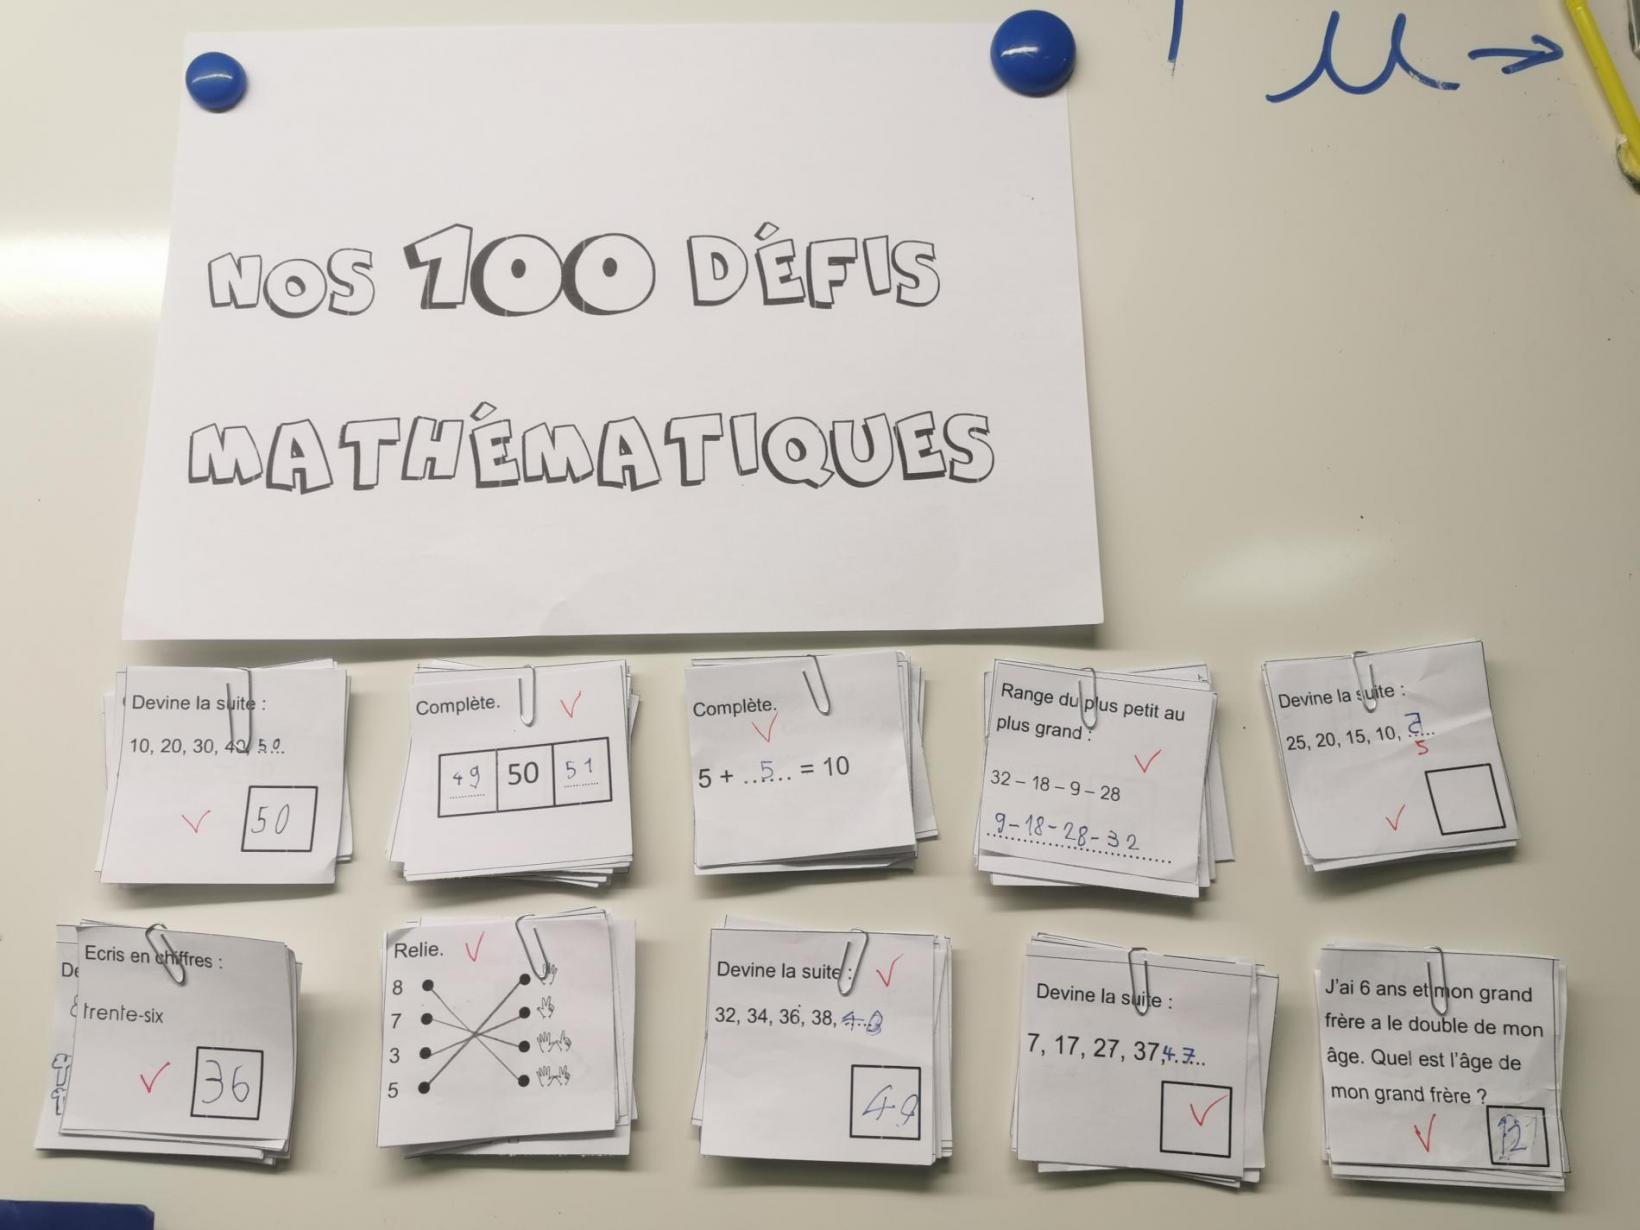 u →
NOS 100 DÉFIS
MATHÉMATIQUES
Devine la suite :
10, 20, 30, 40, 50
50
Complète.
49 50 51
Complète.
5 + 5 = 10
Range du plus petit au
plus grand :
32 – 18 – 9 – 28
9 - 18 - 28 - 32
Devine la suite :
25, 20, 15, 10,
5
Ecris en chiffres :
trente-six
36
Relie.
8
7
3
5
Devine la suite :
32, 34, 36, 38,
Devine la suite :
7, 17, 27, 37, 47
J'ai 6 ans et mon grand
frère a le double de mon
âge. Quel est l'âge de
mon grand frère ?
12